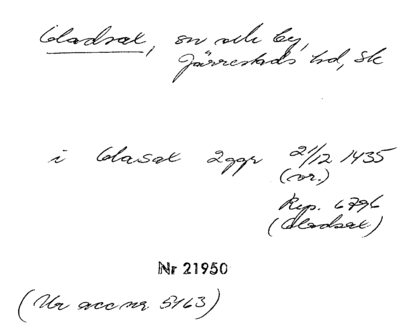 Gladsax, sn och by,
Järrestads hd, Sk
i Glasax 2ggr 21/12 1435
(or.)
Rep. 6796
(Gladsax)
Nr 21950
(Ur acc nr 5463)